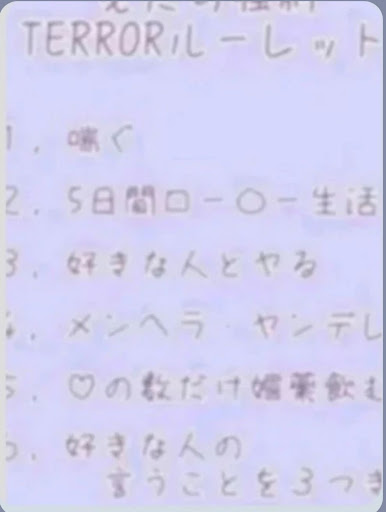 TERRORルーレット
1. 喘ぐ
2. 5日間ロー〇ー生活
3. 好きな人とヤる
4. メンヘラ・ヤンデレ
5. ♡の数だけ媚薬飲む
6. 好きな人の
言うことを3つき